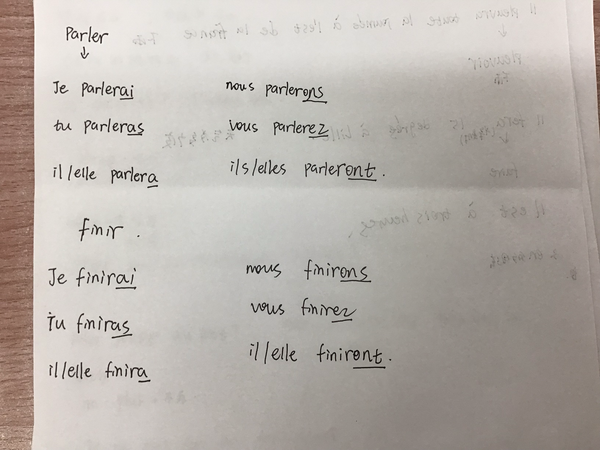 Parler
↓
Je parlerai nous parlerons
tu parleras vous parlerez
il/elle parlera ils/elles parleront.
finir.
Je finirai nous finirons
Tu finiras vous finirez
il/elle finira il/elle finiront.